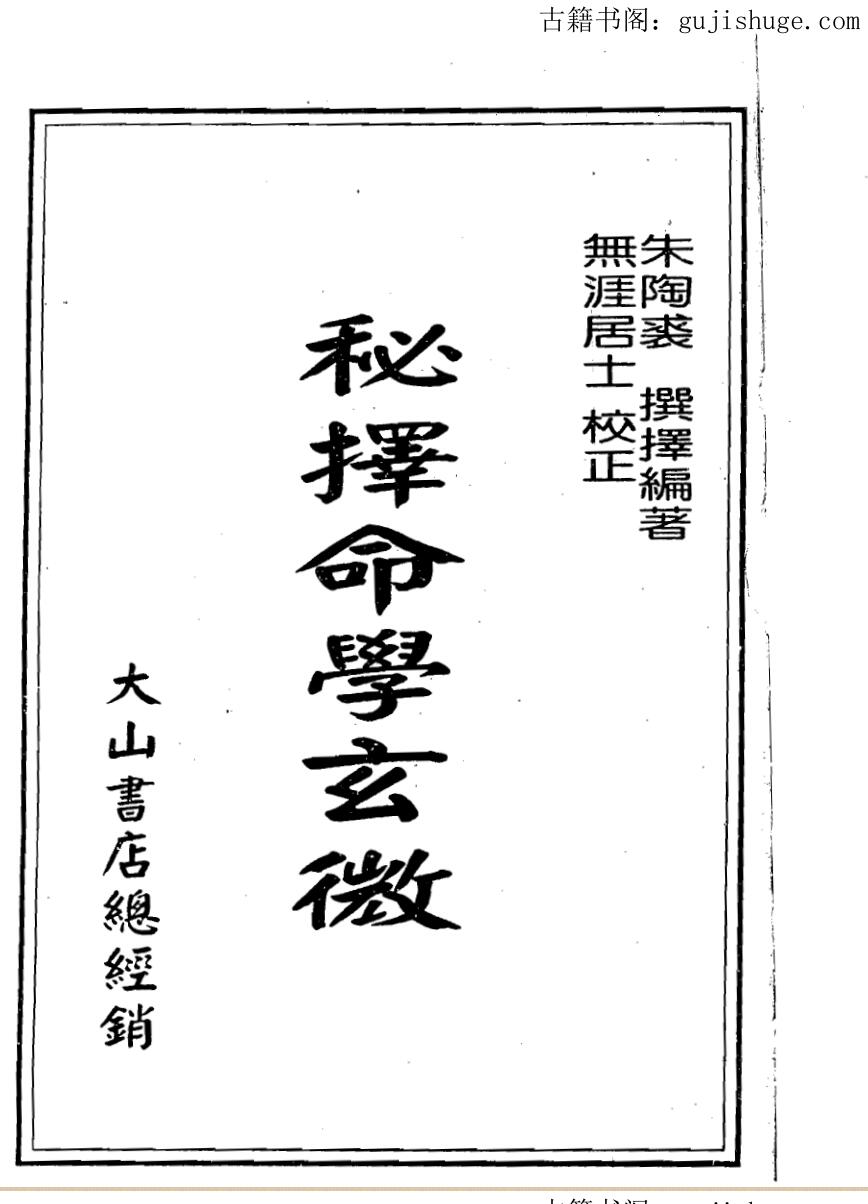 古籍书阁：gujishuge.com
朱陶裘 撰擇編著
無涯居士 校正
秘擇命學玄微
大山書店總經銷